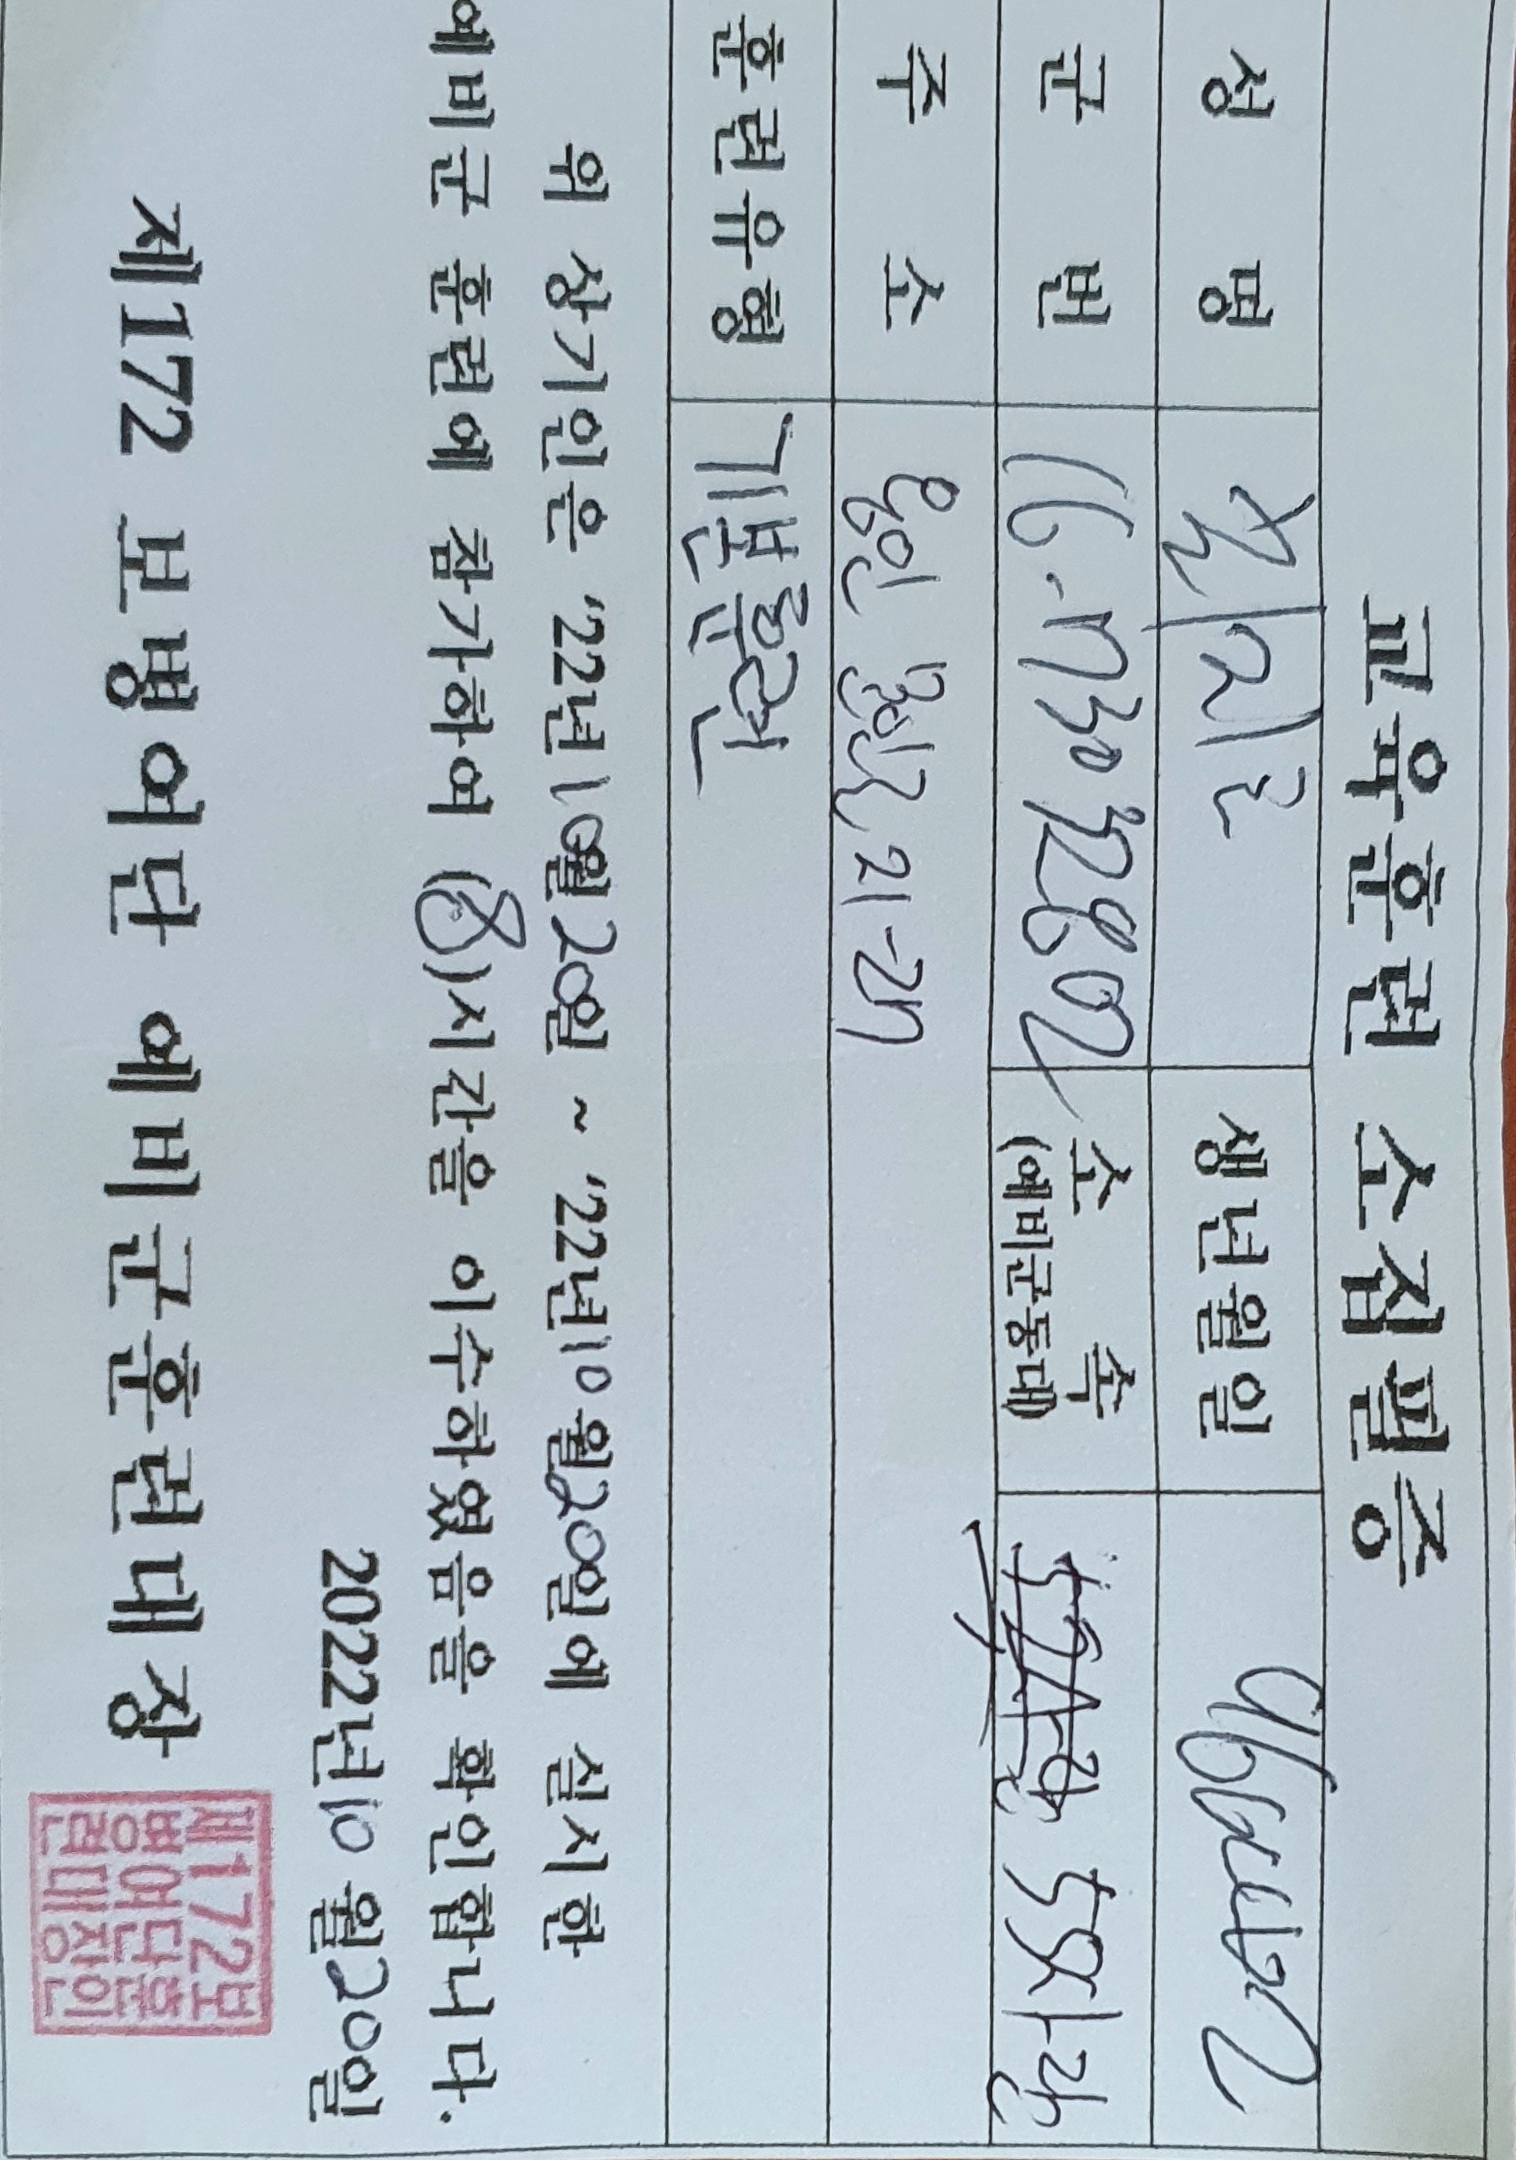 교육훈련 소집필증
성 명
생년월일
군 번 16-73032802
소 속
(예비군동대)
주 소 21-27
훈련유형 기본훈련
위 상기인은 '22년10월20일 ~ '22년10월20일에 실시한
예비군 훈련에 참가하여 (8)시간을 이수하였음을 확인합니다.
2022년10월20일
제172 보병여단 예비군훈련대장
제172보
병여단훈
련대장인